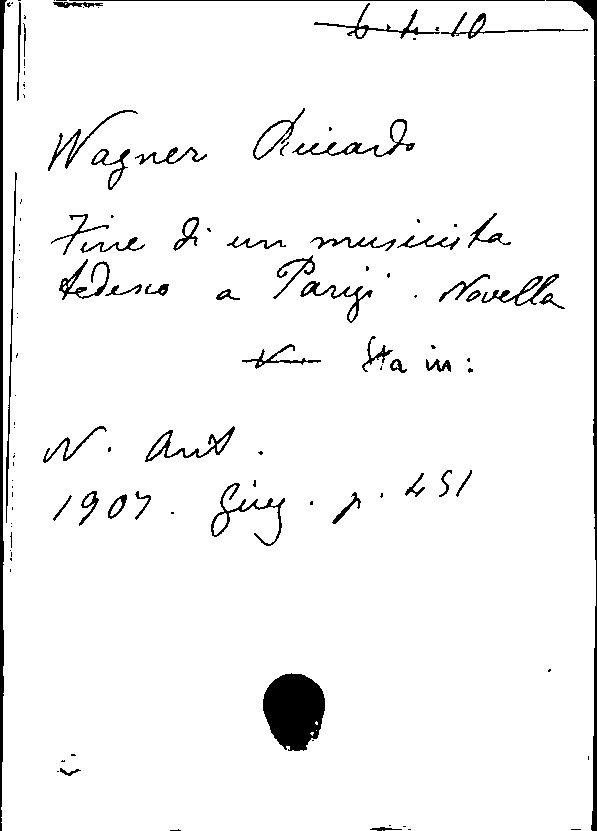 6.4.10
Wagner Riccardo
Fine di un musicista
tedesco a Parigi. Novella
Sta in:
N. Ant.
1907. Giug. p. 451